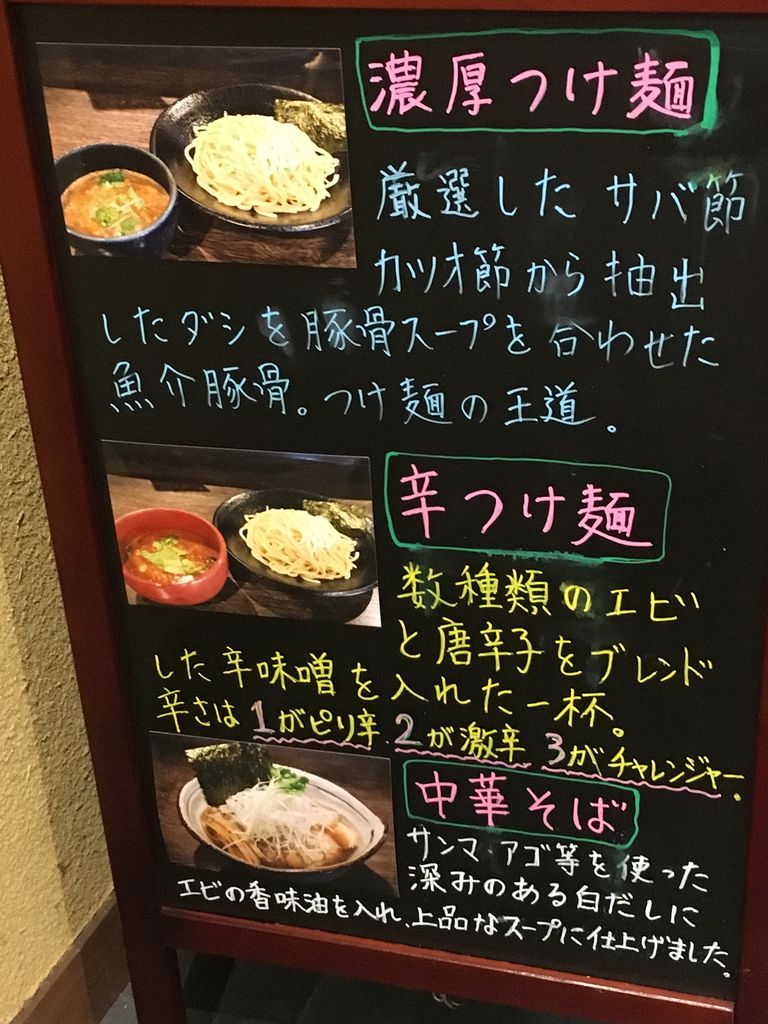 濃厚つけ麺
厳選したサバ節
カツオ節から抽出
したダシを豚骨スープを合わせた
魚介豚骨。つけ麺の王道。
辛つけ麺
数種類のエビ
と唐辛子をブレンド
した辛味噌を入れた一杯。
辛さは1がピリ辛 2が激辛 3がチャレンジャー。
中華そば
サンマ・アゴ等を使った
深みのある白だしに
エビの香味油を入れ、上品なスープに仕上げました。